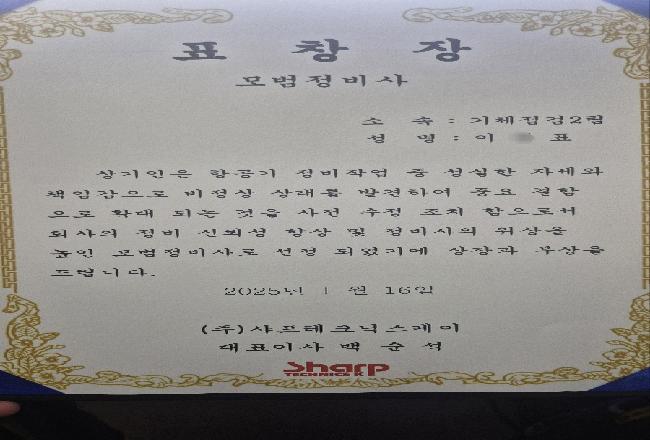 표 창 장
모범정비사
소 속 : 기체점검2팀
성 명 : 이 표
상기인은 항공기 정비작업 중 성실한 자세와
책임감으로 비정상 상태를 발견하여 중요 결함
으로 확대 되는 것을 사전 수정 조치 함으로써
회사의 정비 신뢰성 향상 및 정비사의 위상을
높인 모범정비사로 선정 되었기에 상장과 부상을
드립니다.
2025년 1 월 16일
(주)샤프테크닉스케이
대표이사 백 순 석
sharp
TECHNICS K